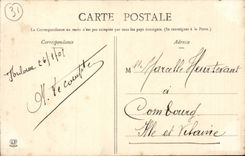 31
CARTE POSTALE
La Correspondance au recto n'est pas acceptée par tous les pays étrangers. (Se renseigner à la Poste.)
Correspondance
Adresse
Toulouse 26/1/05
M. Lecompte
Mlle Marcelle
à
Combourg
Ille et Vilaine